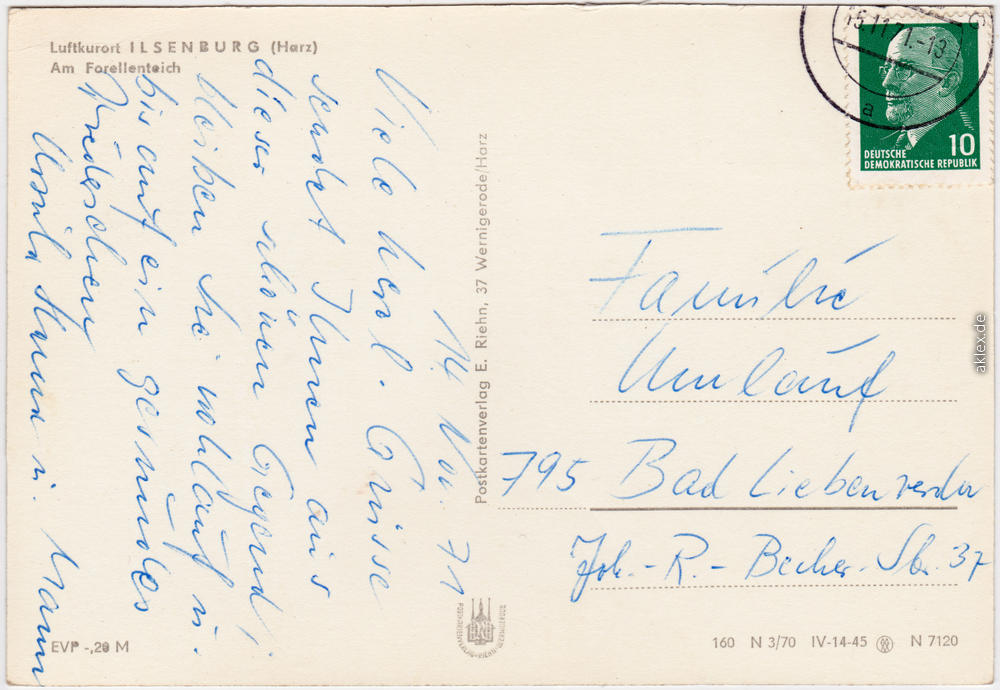 Luftkurort ILSENBURG (Harz)
Am Forellenteich
14. Nov. 71
Viele herzl. Grüsse
sendet Ihnen aus
dieser schönen Gegend!
bleiben Sie wohlauf u.
bis auf ein gesundes
Wiedersehen
Ursula u. Mann
Postkartenverlag E. Riehn, 37 Wernigerode/Harz
15.11.71.-13
a
10
DEUTSCHE
DEMOKRATISCHE REPUBLIK
Familie
Umlauf
795 Bad Liebenwerda
Joh.-R.-Becher-Str. 37
EVP -,20 M
160 N 3/70 IV-14-45 N 7120
aklex.de